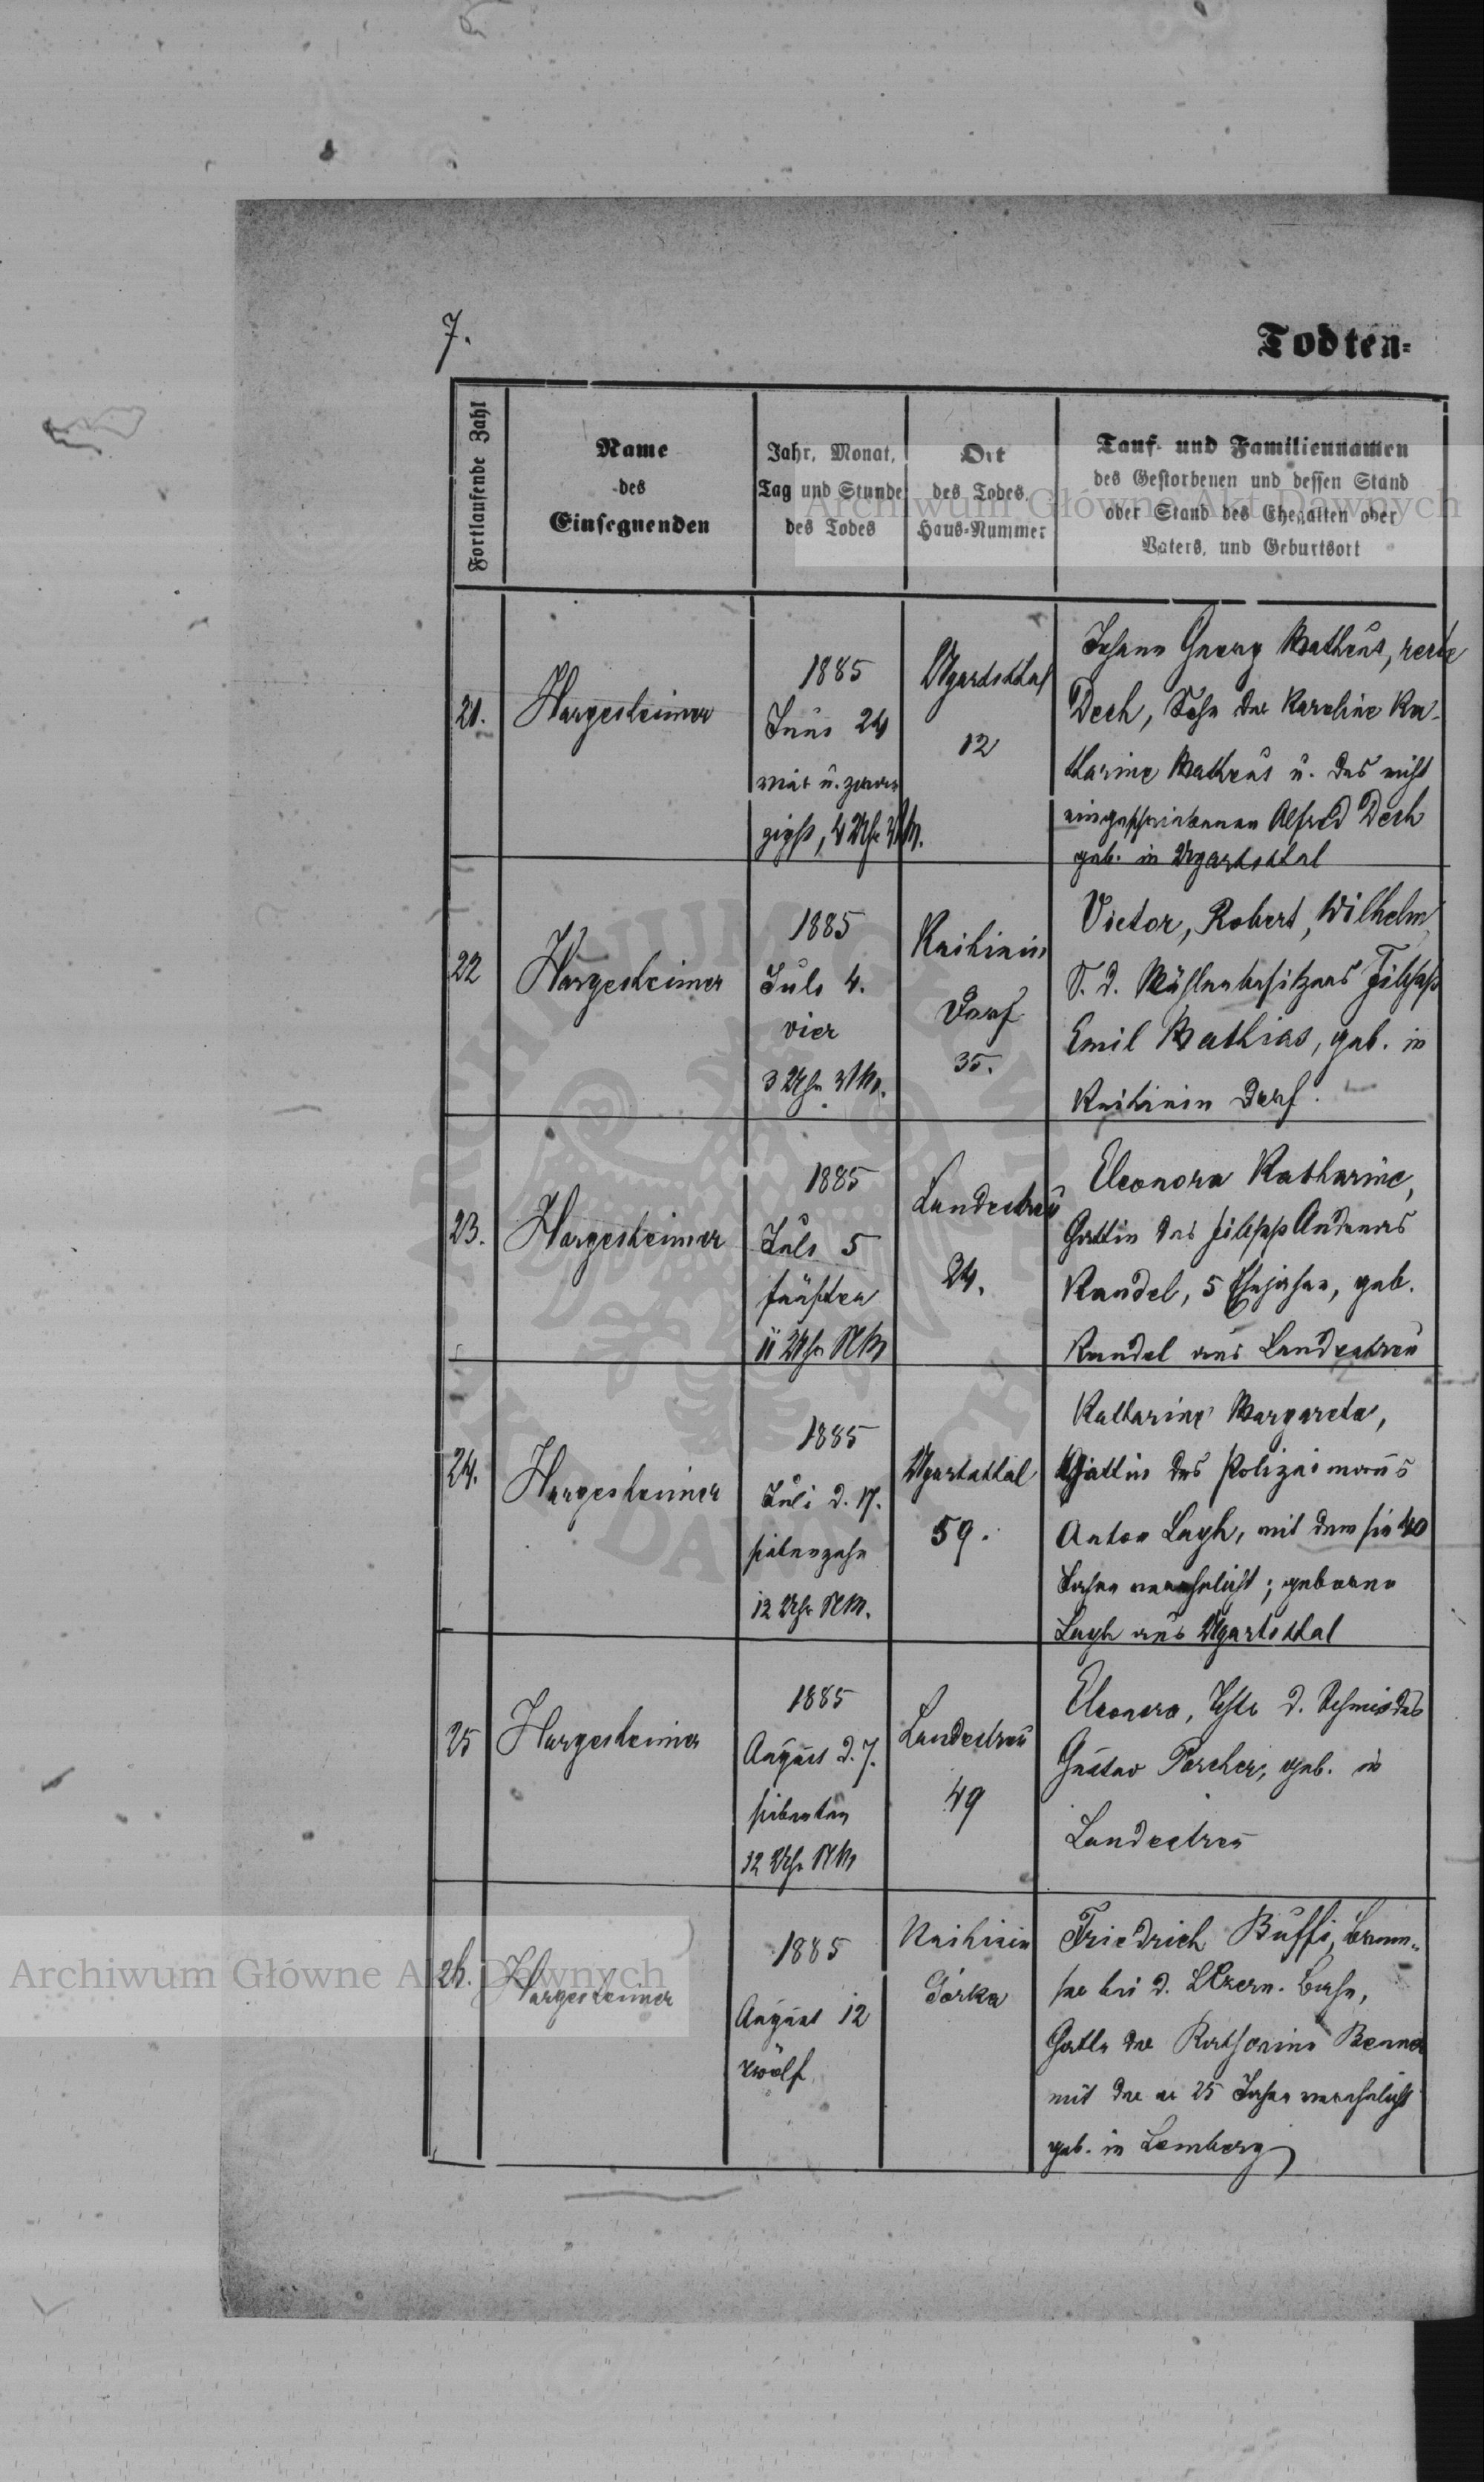 7.
Todten=
Fortlaufende Zahl
Name
des
Einsegnenden
Jahr, Monat,
Tag und Stunde
des Todes
Ort
des Todes,
Haus-Nummer
Tauf- und Familiennamen
des Gestorbenen und dessen Stand
oder Stand des Ehegatten oder
Vaters, und Geburtsort
21.
Hargesheimer
1885
Juni 24
vier u. zwan
zigst, 4 Uhr NM.
Ugartsthal
12
Johann Georg Matheus, recte
Dech, Sohn der Karoline Ka-
tharine Matheus u. des nicht
eingeschriebenen Alfred Dech
geb. in Ugartsthal
22
Hargesheimer
1885
Juli 4.
vier
3 Uhr NM.
Knihinin
Dorf
35.
Victor, Robert, Wilhelm
S. d. Mühlenbesitzers Filipp
Emil Mathias, geb. in
Knihinin Dorf.
23.
Hargesheimer
1885
Juli 5
fünften
11 Uhr NM
Landestreu
24.
Eleonora Katharine,
Gattin des Filipp Andreas
Kandel, 5 Ehejahre, geb.
Kandel aus Landestreu
24.
Hargesheimer
1885
Juli d. 17.
siebenzehn
12 Uhr NM.
Ugartsthal
59.
Katharine Margareta,
Gattin des Polizeimanns
Anton Layh, mit dem sie 40
Jahre verehelicht; geborene
Layh aus Ugartsthal
25
Hargesheimer
1885
August d. 7.
siebenten
12 Uhr NM
Landestreu
49
Eleonora, Tchtr d. Schmiedes
Gustav Porcher, geb. in
Landestreu
26.
Hargesheimer
1885
August 12
zwölf
Knihinin
Górka
Friedrich Buffi, Brem-
ser bei d. LCzern. Bahn,
Gatte der Katharina Benna
mit der er 25 Jahre verehelicht
geb. in Lemberg
Archiwum Główne Akt Dawnych
Archiwum Główne Akt Dawnych
ARCHIWUM GŁÓWNE AKT DAWNYCH